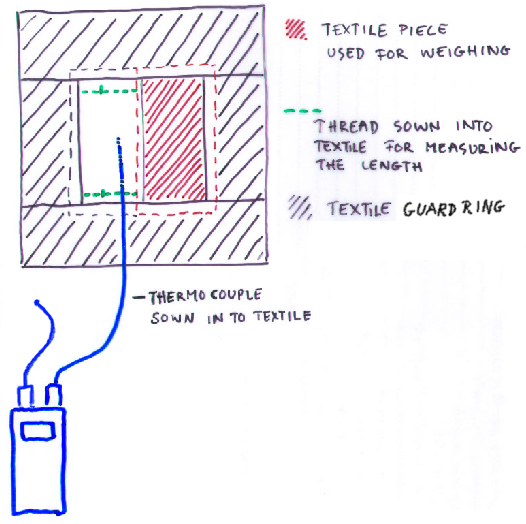 TEXTILE PIECE
USED FOR WEIGHING
THREAD SOWN INTO
TEXTILE FOR MEASURING
THE LENGTH
TEXTILE GUARD RING
THERMO COUPLE
SOWN IN TO TEXTILE